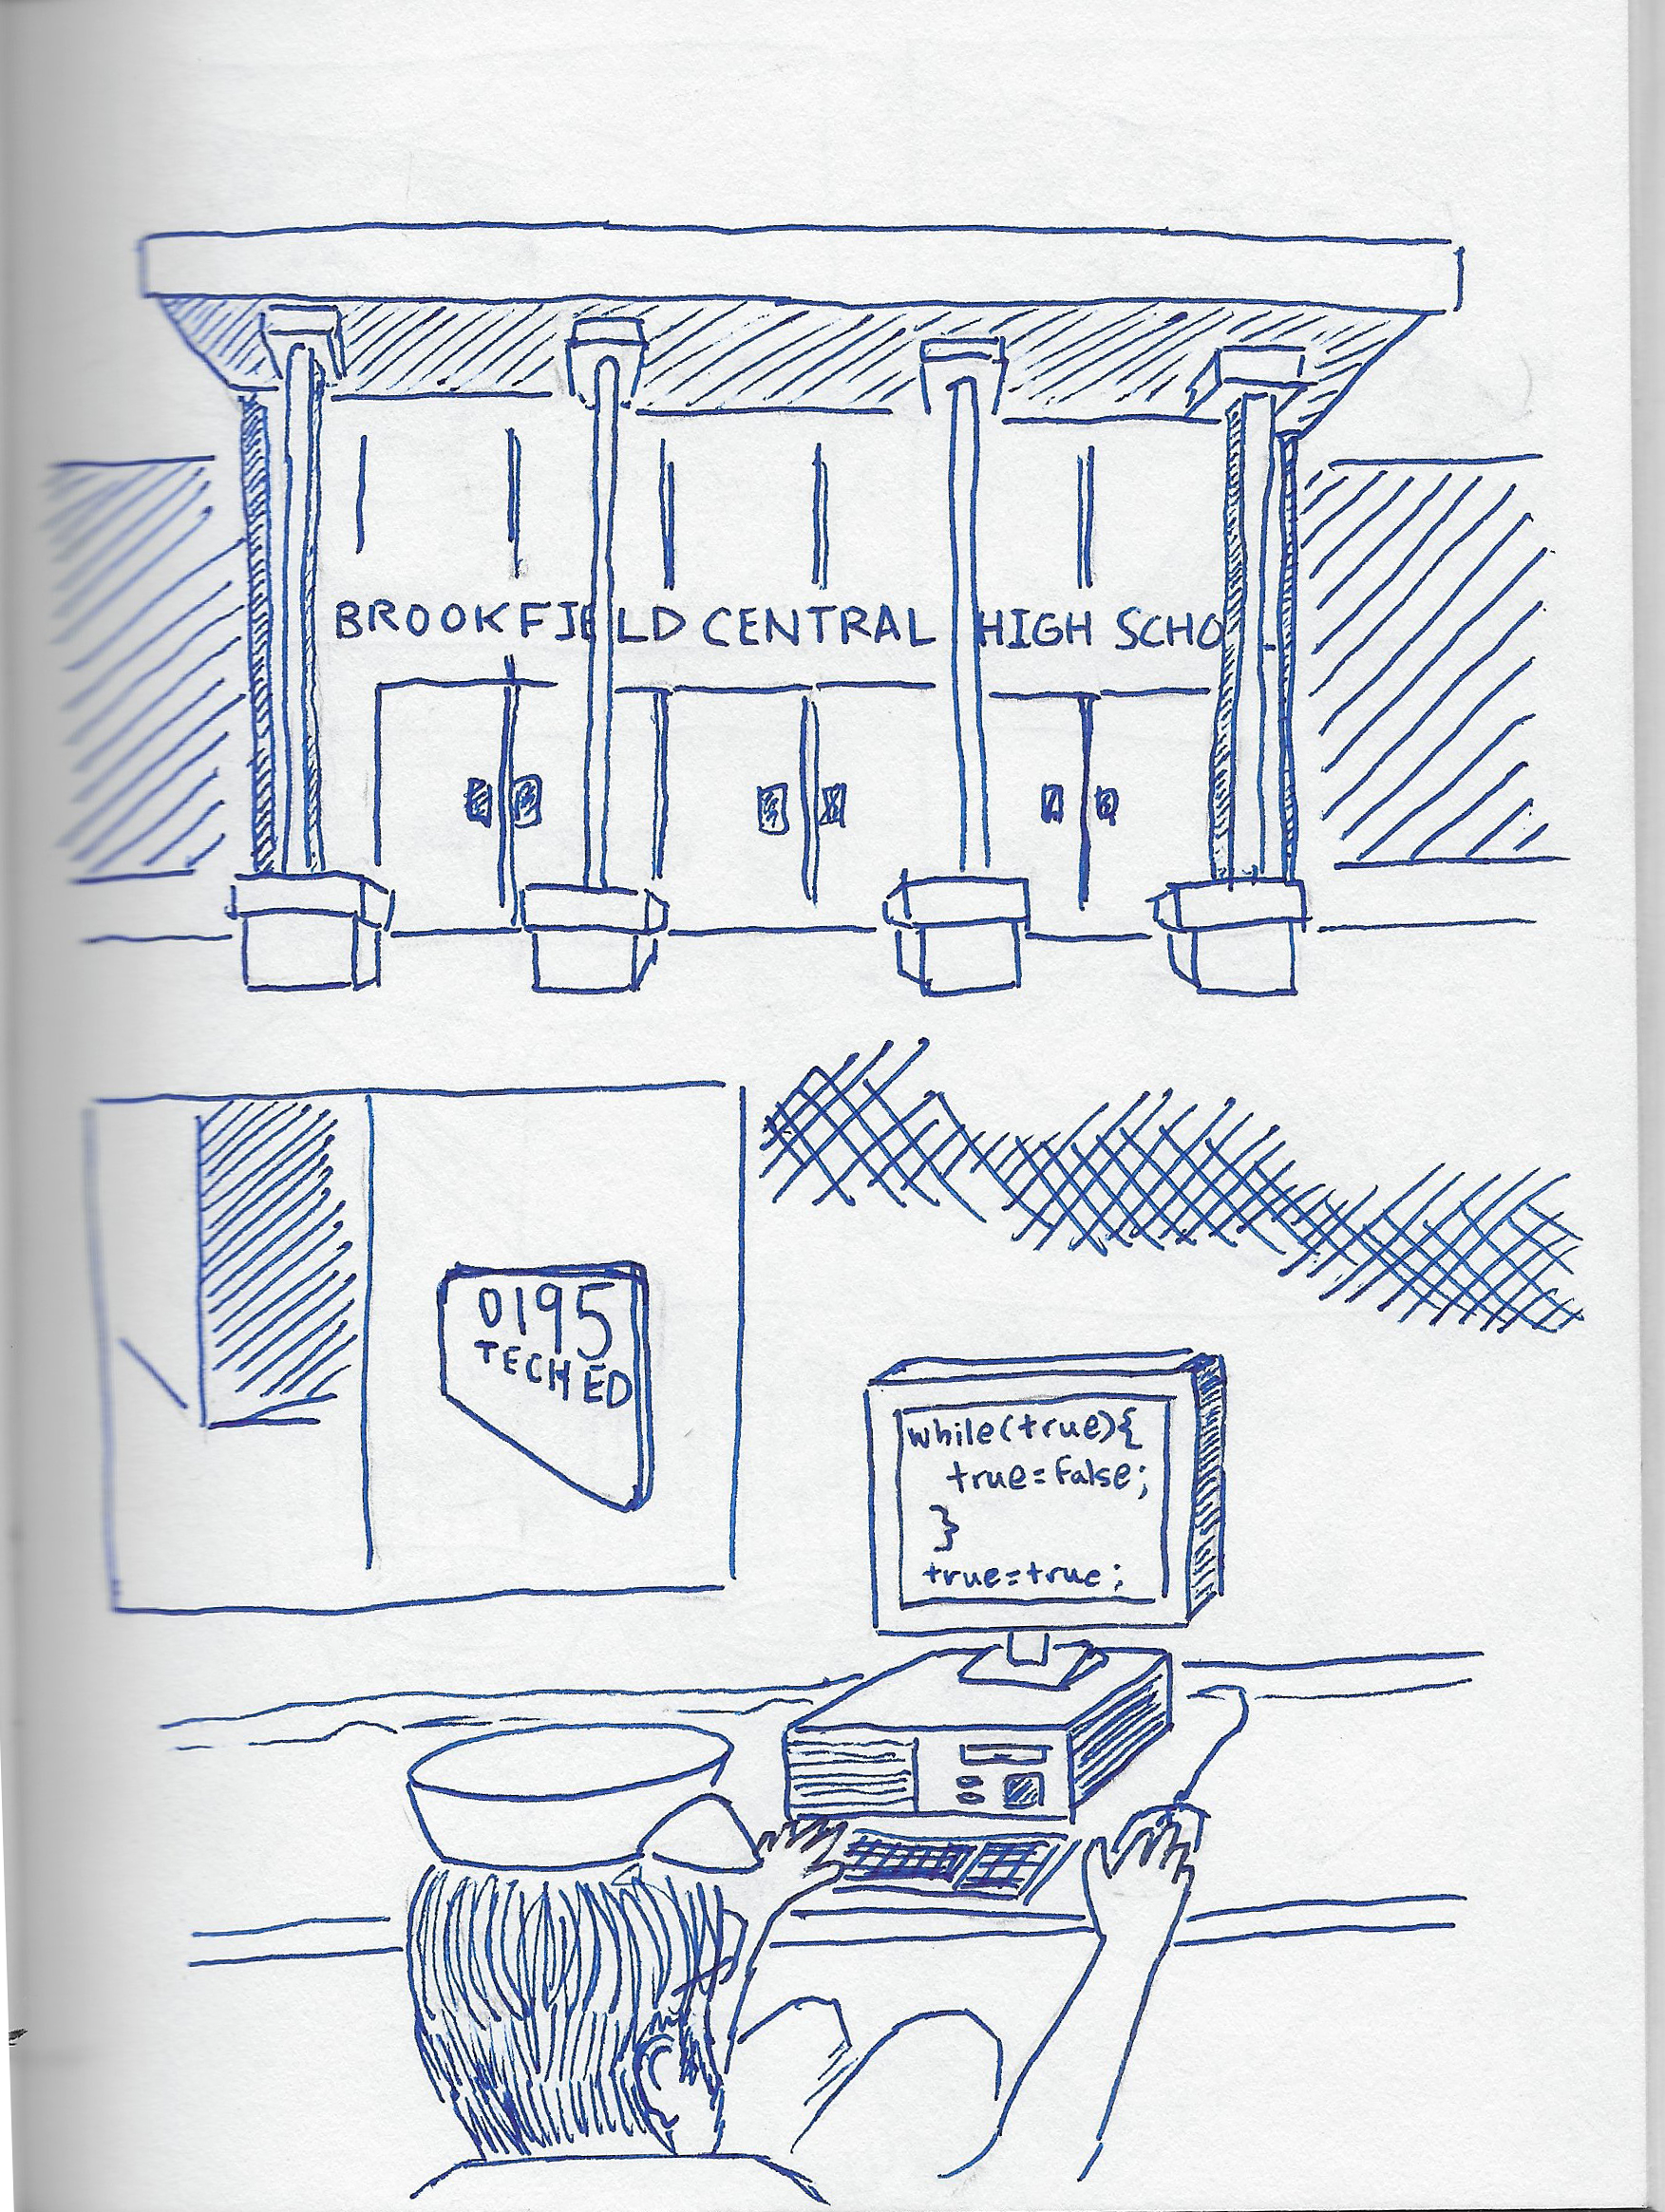 BROOKFIELD CENTRAL HIGH SCHO
0195
TECH ED
while(true){
true=false;
}
true=true;